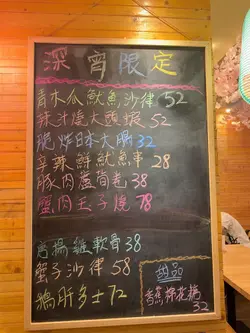 深宵限定
青木瓜魷魚沙律 52
辣汁燒大頭蝦 52
脆炸日本大腸 32
辛辣鮮魷魚串 28
豚肉蘆筍卷 38
蟹肉王子燒 78
唐揚雞軟骨 38
蟹子沙律 58
鵝肝多士 72
甜品
香蕉棉花糖
32